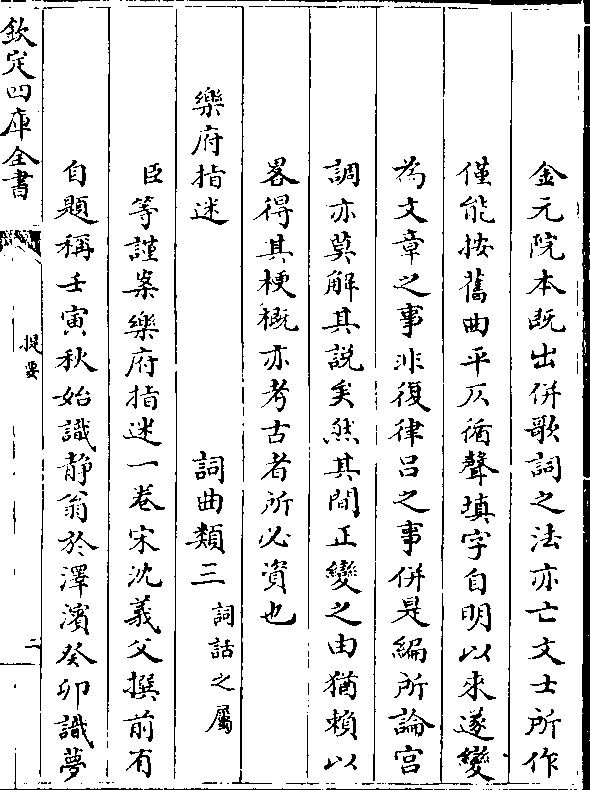 金元院本既出併歌詞之法亦亡文士所作
僅能按舊曲平仄循聲填字自明以來遂變
為文章之事非復律呂之事併是編所論宮
調亦莫解其說矣然其間正變之由猶賴以
畧得其梗概亦考古者所必資也
樂府指迷　詞曲類三詞話之屬
臣等謹案樂府指迷一卷宋沈義父撰前有
自題稱壬寅秋始識靜翁於澤濱癸卯識夢
欽定四庫全書
提要
二